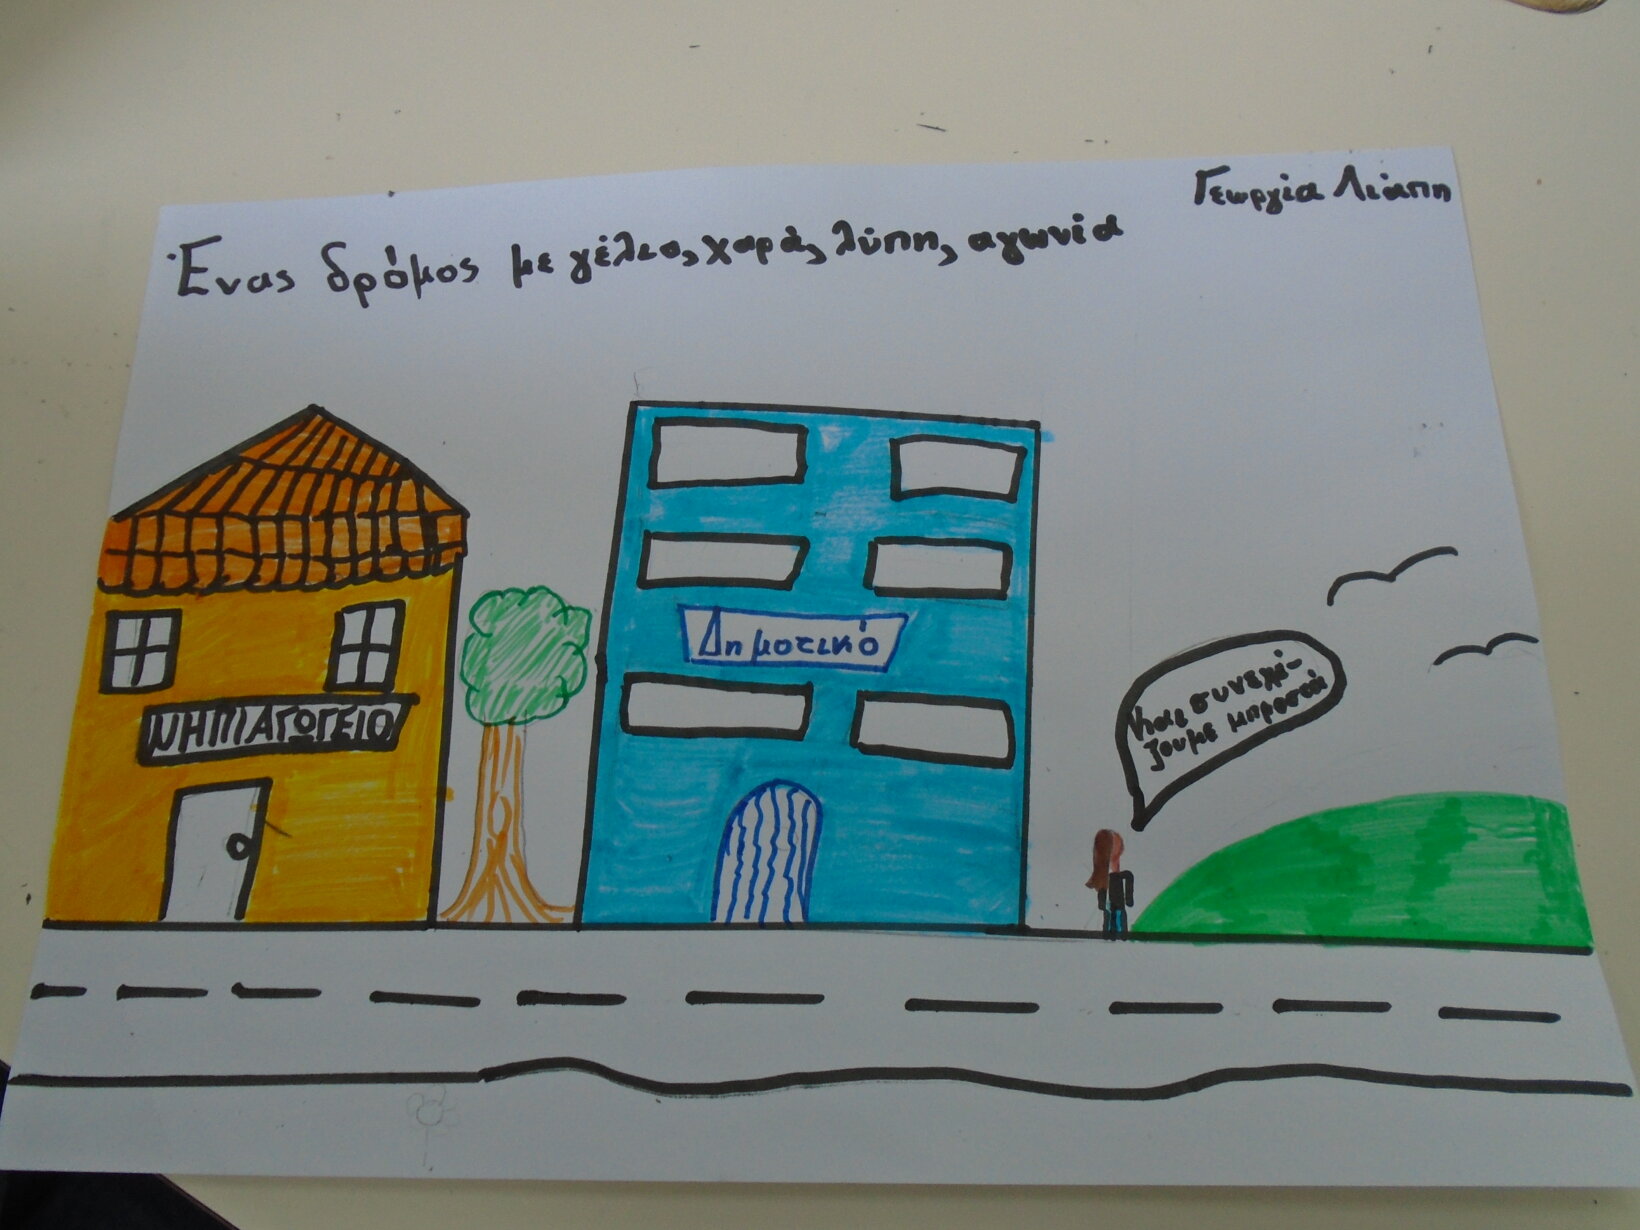 Ένας δρόμος με γέλιο, χαρά, λύπη, αγωνία
Γεωργία Λιάπη
ΝΗΠΙΑΓΩΓΕΙΟ
Δημοτικό
Και συνεχί-
ζουμε μπροστά